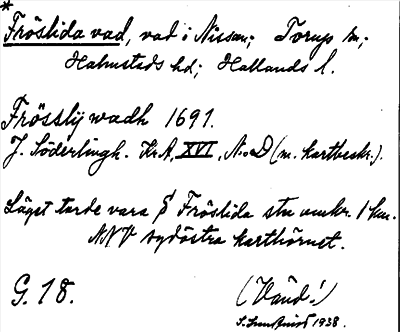 *
Fröslida vad, vad i Nissan; Torup sn;
Halmstads hd; Hallands l.
Frösslij wadh 1691.
J. Söderlingh. K.A. XVI, N:o D (m. kartbeskr.).
Läget torde vara På Fröslida stn omkr. 1 km.
NNV sydöstra karthörnet.
G. 18.
(Vänd!)
1938.